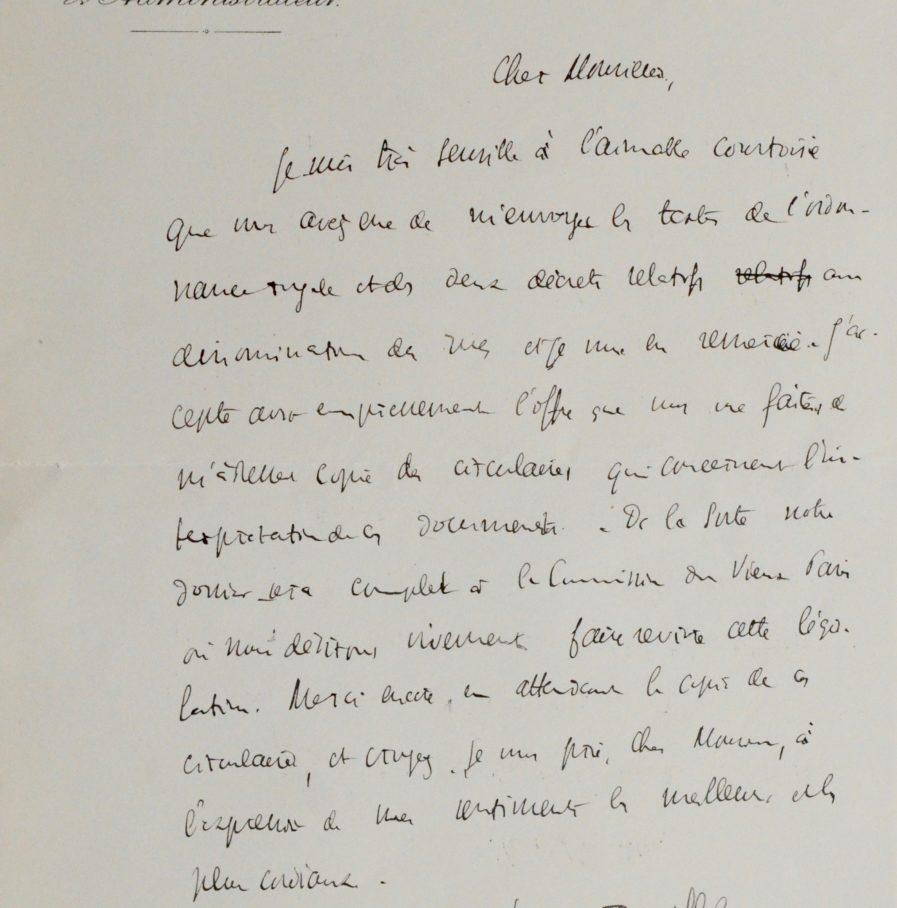 L'Administrateur.
Cher Monsieur,
Je suis très sensible à l'aimable courtoisie
que vous avez eue de m'envoyer les textes de l'ordon-
nance royale et des deux décrets relatifs relatifs aux
dénomination des rues et je vous en remercie. J'ac-
cepte avec empressement l'offre que vous me faites de
m'adresser copie des circulaires qui concernent l'in-
terprétation de ces documents. De la sorte notre
dossier sera complet à la Commission du Vieux Paris
où nous désirons vivement faire revivre cette légis-
lation. Merci encore, en attendant la copie de ces
circulaires, et croyez, je vous prie, cher Monsieur, à
l'expression de mes sentiments les meilleurs et les
plus cordiaux.